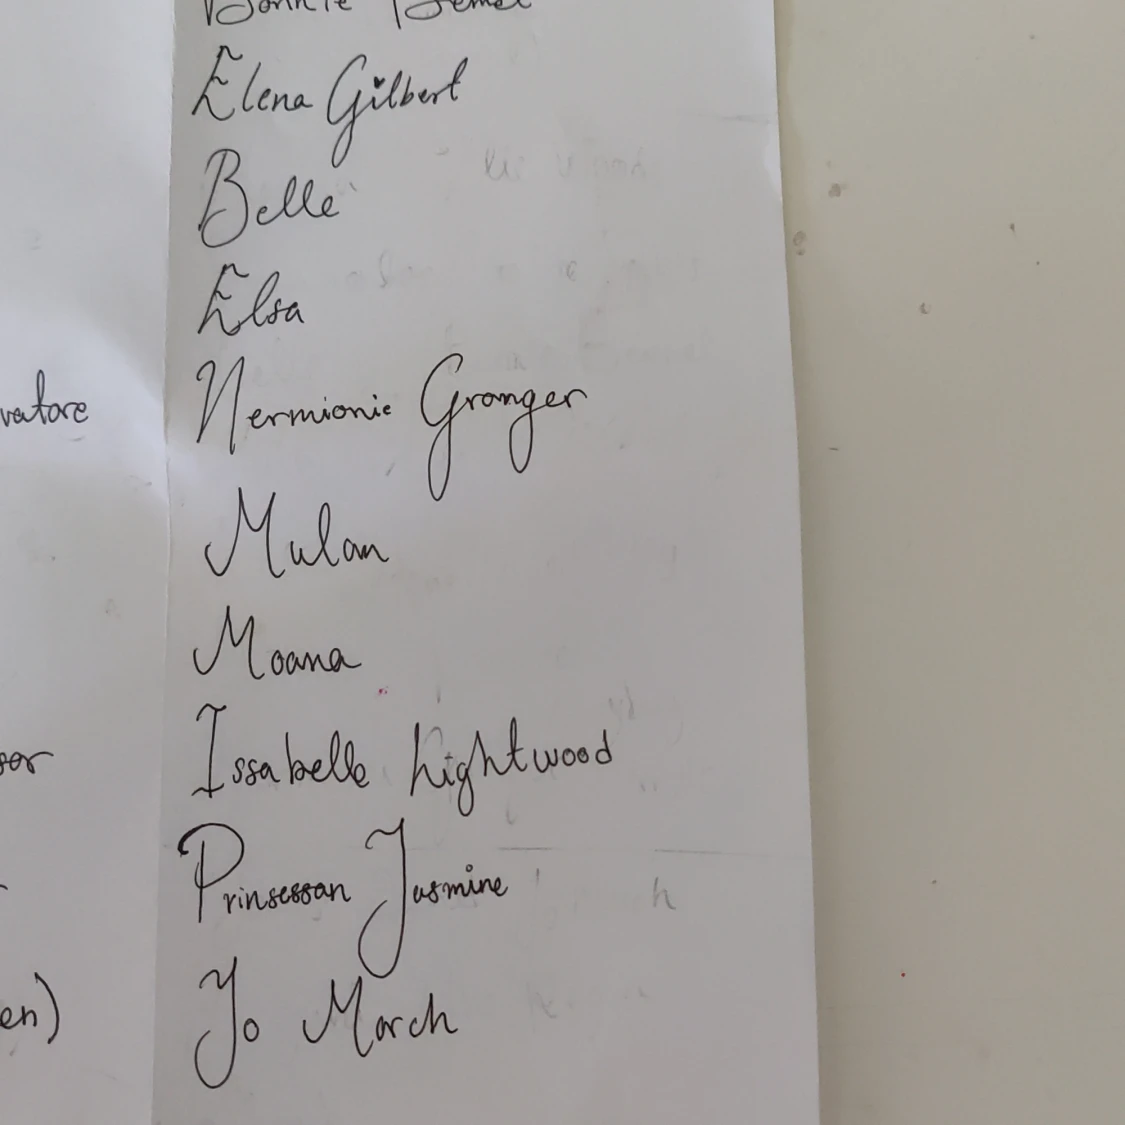 Elena Gilbert
Belle
Elsa
Hermionie Granger
Mulan
Moana
Issabelle Lightwood
Prinsessan Jasmine
Jo March
vatore
sor
en)